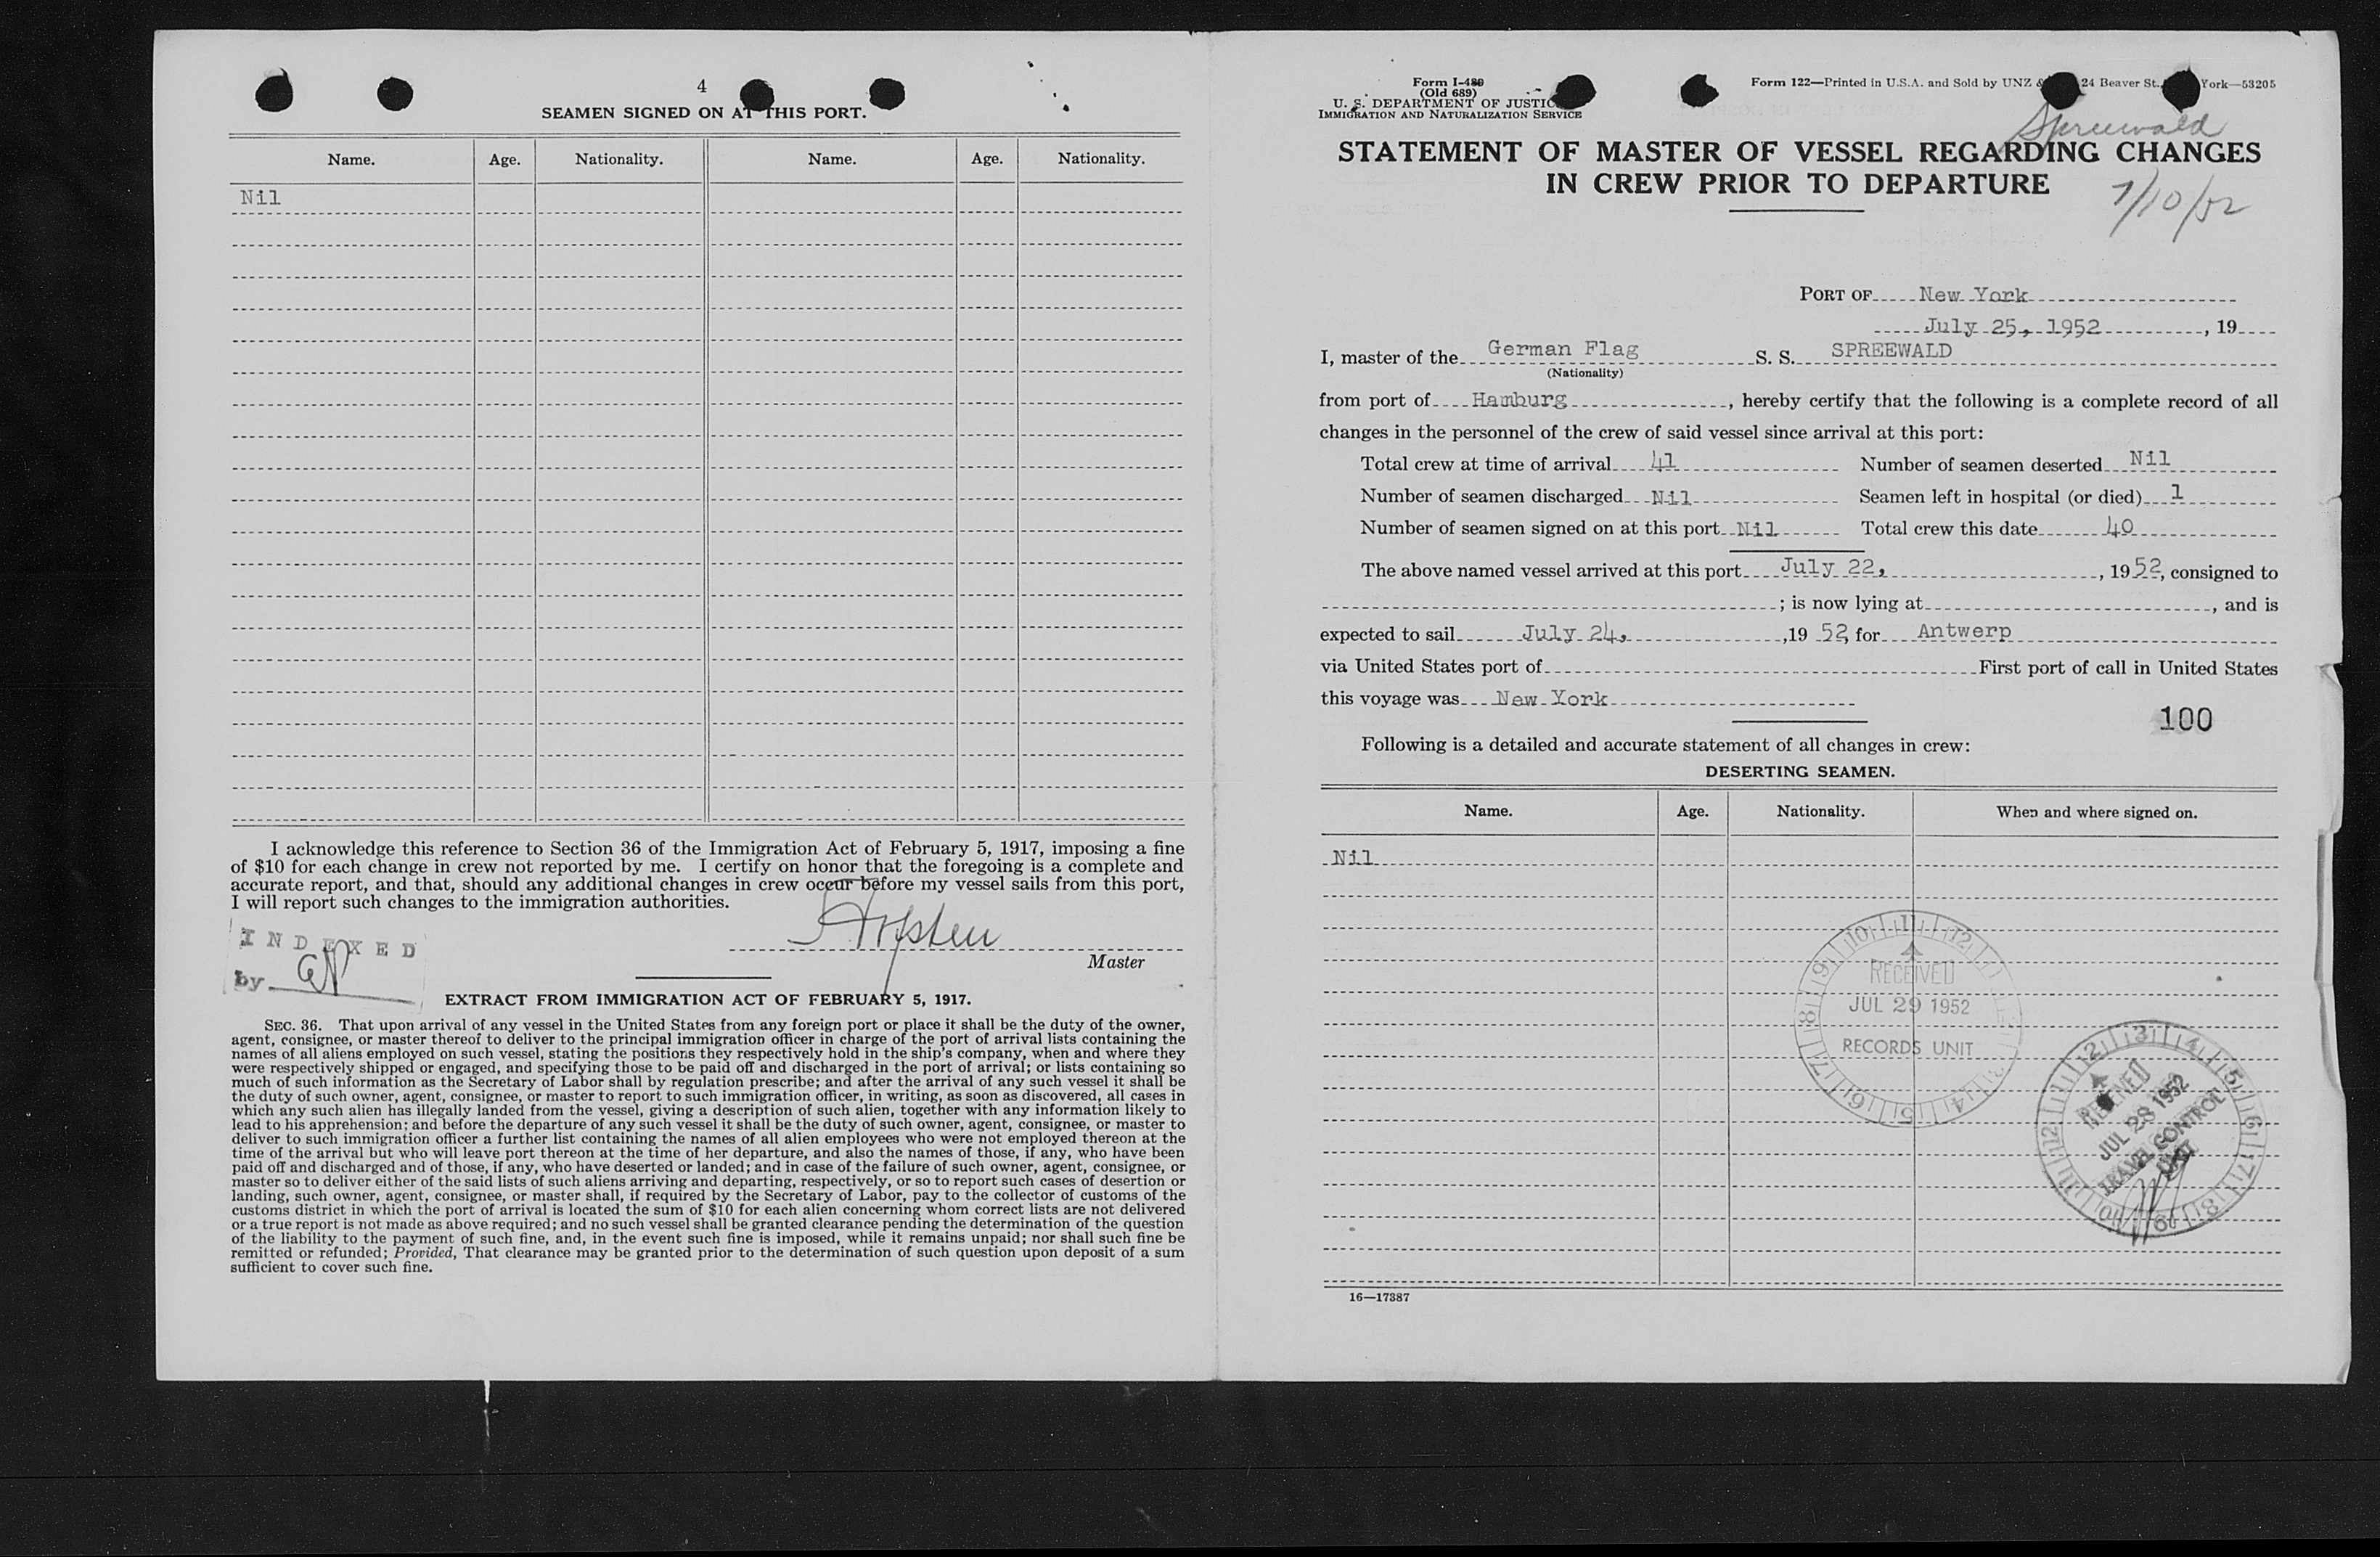 4
SEAMEN SIGNED ON AT THIS PORT.
Name. Age. Nationality. Name. Age. Nationality.
Nil
I acknowledge this reference to Section 36 of the Immigration Act of February 5, 1917, imposing a fine
of $10 for each change in crew not reported by me. I certify on honor that the foregoing is a complete and
accurate report, and that, should any additional changes in crew occur before my vessel sails from this port,
I will report such changes to the immigration authorities.
INDEXED
by
Master
EXTRACT FROM IMMIGRATION ACT OF FEBRUARY 5, 1917.
SEC. 36. That upon arrival of any vessel in the United States from any foreign port or place it shall be the duty of the owner,
agent, consignee, or master thereof to deliver to the principal immigration officer in charge of the port of arrival lists containing the
names of all aliens employed on such vessel, stating the positions they respectively hold in the ship's company, when and where they
were respectively shipped or engaged, and specifying those to be paid off and discharged in the port of arrival; or lists containing so
much of such information as the Secretary of Labor shall by regulation prescribe; and after the arrival of any such vessel it shall be
the duty of such owner, agent, consignee, or master to report to such immigration officer, in writing, as soon as discovered, all cases in
which any such alien has illegally landed from the vessel, giving a description of such alien, together with any information likely to
lead to his apprehension; and before the departure of any such vessel it shall be the duty of such owner, agent, consignee, or master to
deliver to such immigration officer a further list containing the names of all alien employees who were not employed thereon at the
time of the arrival but who will leave port thereon at the time of her departure, and also the names of those, if any, who have been
paid off and discharged and of those, if any, who have deserted or landed; and in case of the failure of such owner, agent, consignee, or
master so to deliver either of the said lists of such aliens arriving and departing, respectively, or so to report such cases of desertion or
landing, such owner, agent, consignee, or master shall, if required by the Secretary of Labor, pay to the collector of customs of the
customs district in which the port of arrival is located the sum of $10 for each alien concerning whom correct lists are not delivered
or a true report is not made as above required; and no such vessel shall be granted clearance pending the determination of the question
of the liability to the payment of such fine, and, in the event such fine is imposed, while it remains unpaid; nor shall such fine be
remitted or refunded; Provided, That clearance may be granted prior to the determination of such question upon deposit of a sum
sufficient to cover such fine.
Form I-489
(Old 689)
U. S. DEPARTMENT OF JUSTIC
IMMIGRATION AND NATURALIZATION SERVICE
Form 122—Printed in U.S.A. and Sold by UNZ & 24 Beaver St., York—53205
Spreewald
STATEMENT OF MASTER OF VESSEL REGARDING CHANGES
IN CREW PRIOR TO DEPARTURE
7/10/52
PORT OF New York
July 25, 1952, 19
I, master of the German Flag S. S. SPREEWALD
(Nationality)
from port of Hamburg, hereby certify that the following is a complete record of all
changes in the personnel of the crew of said vessel since arrival at this port:
Total crew at time of arrival 41 Number of seamen deserted Nil
Number of seamen discharged Nil Seamen left in hospital (or died) 1
Number of seamen signed on at this port Nil Total crew this date 40
The above named vessel arrived at this port July 22, , 1952, consigned to
; is now lying at , and is
expected to sail July 24, ,19 52, for Antwerp
via United States port of First port of call in United States
this voyage was New York
100
Following is a detailed and accurate statement of all changes in crew:
DESERTING SEAMEN.
Name. Age. Nationality. When and where signed on.
Nil
RECEIVED
JUL 29 1952
RECORDS UNIT
RECEIVED
JUL 28 1952
TRAVEL CONTROL
UNIT
16—17387